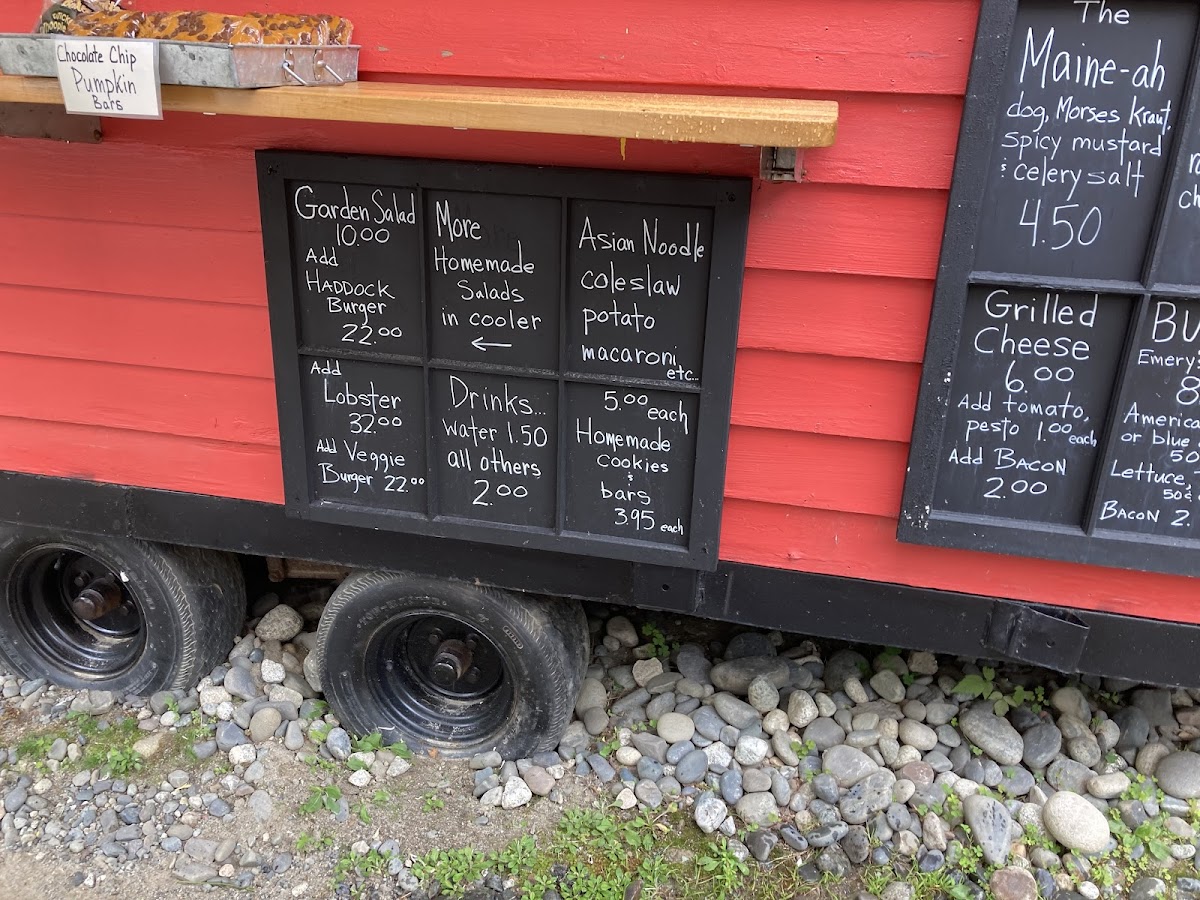 Chocolate Chip
Pumpkin
Bars
Garden Salad
10.00
Add
HADDOCK
Burger
22.00
Add
Lobster
32.00
Add Veggie
Burger 22.00
More
Homemade
Salads
in cooler
←
Drinks...
water 1.50
all others
2.00
Asian Noodle
coleslaw
potato
macaroni
etc...
5.00 each
Homemade
cookies
&
bars
3.95 each
The
Maine-ah
dog, Morses Kraut,
spicy mustard
& celery salt
4.50
Grilled
Cheese
6.00
Add tomato,
pesto 1.00 each
Add BACON
2.00
Emery's
8
America
or blue
50
Lettuce,
50¢
BACON 2.